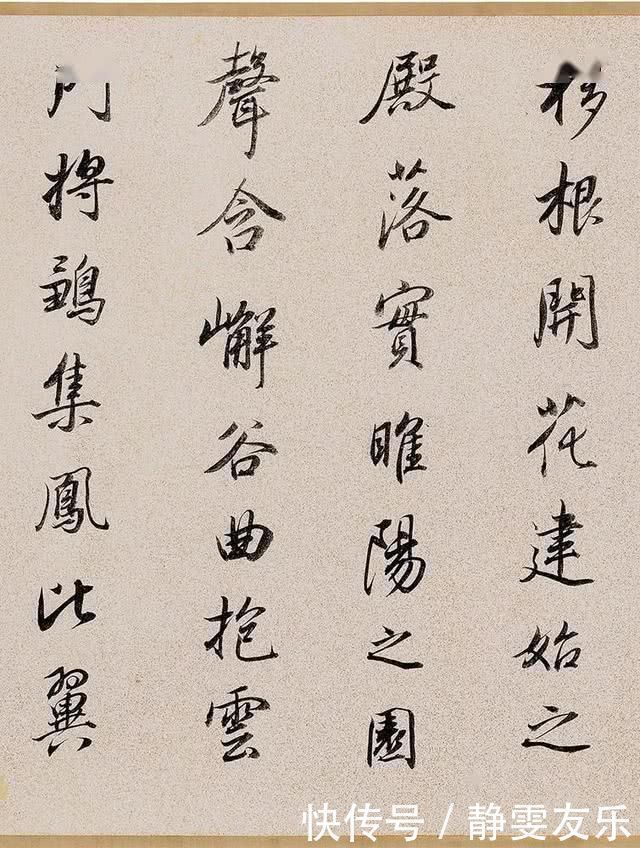 移根開花建始之
殿落實睢陽之園
聲含嶰谷曲抱雲
門將鶵集鳳比翼
快传号/静雯友乐